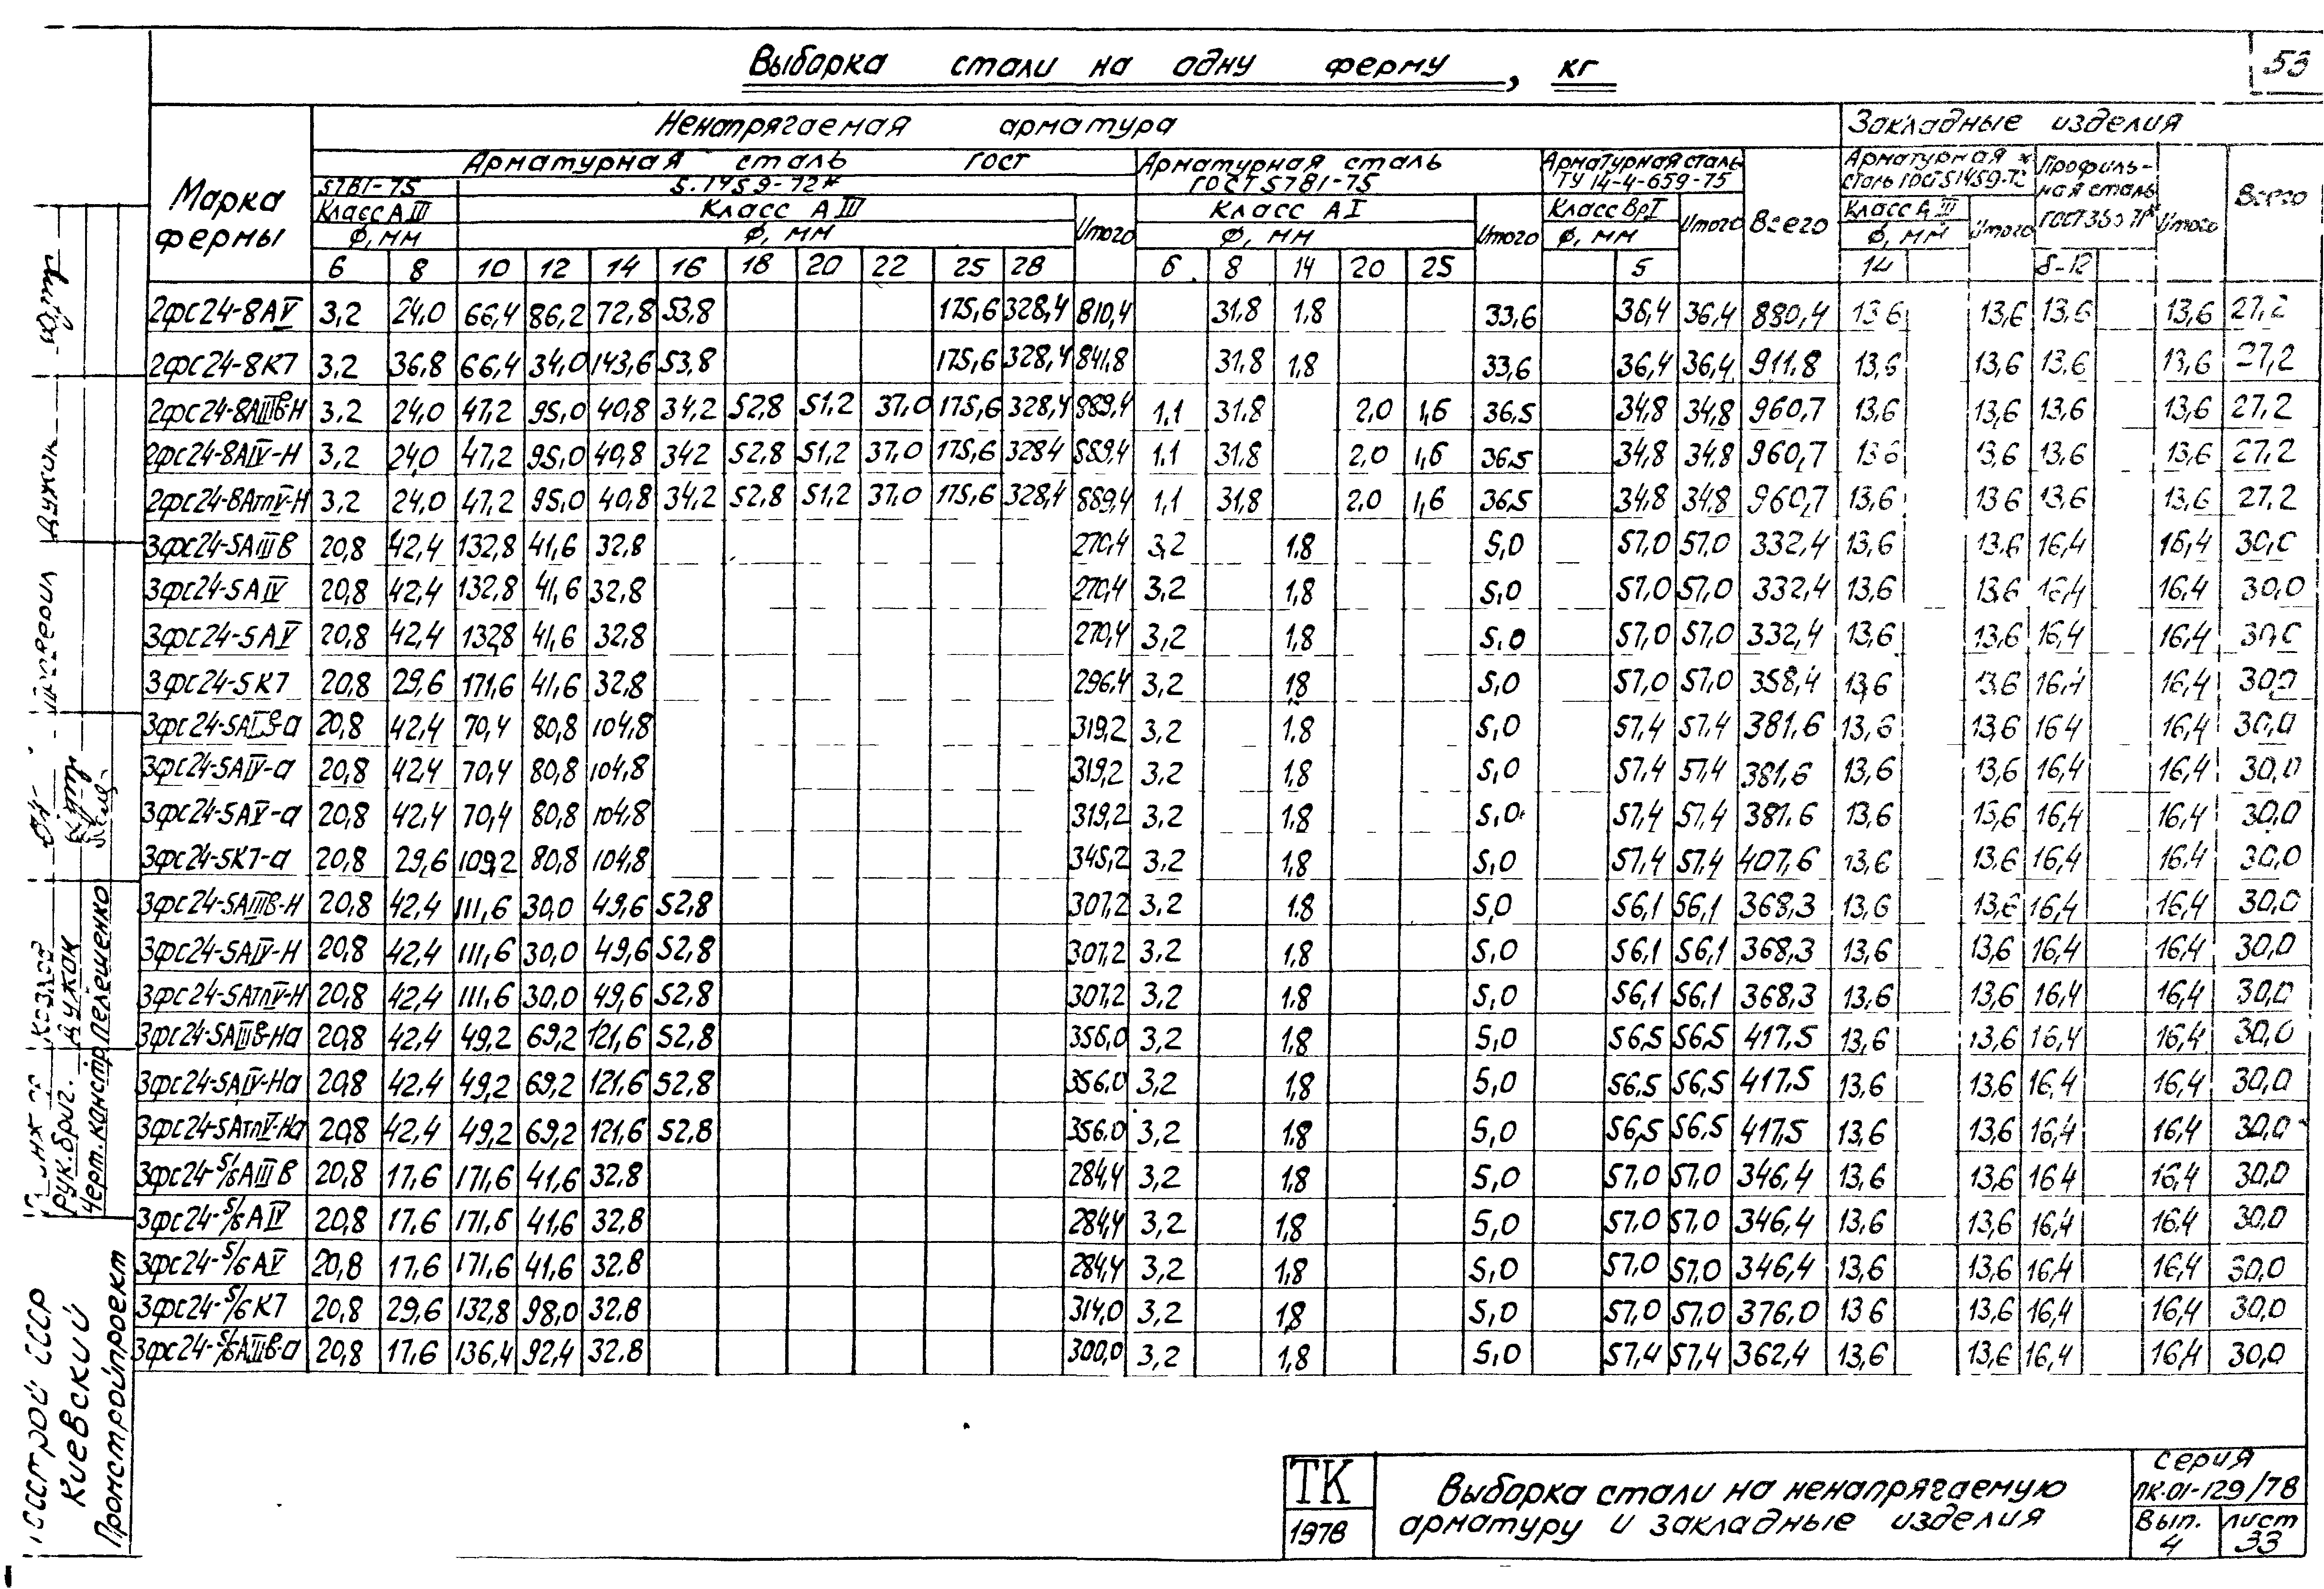 53
Выборка стали на одну ферму, кг
Марка фермы
Ненапрягаемая арматура
Закладные изделия
Арматурная сталь ГОСТ
Арматурная сталь ГОСТ 5781-75
Арматурная сталь ТУ 14-4-659-75
Всего
Арматурная сталь ГОСТ 51459-72*
Профильная сталь
Всего
5781-75
5.1459-72*
Класс АIII
Класс АIII
Итого
Класс АI
Итого
Класс ВрI
Итого
Класс АIII
Итого
Итого
Ø, мм
Ø, мм
Ø, мм
Ø, мм
Ø, мм
6 8 10 12 14 16 18 20 22 25 28 6 8 14 20 25 5 14 δ-12
2фс24-8АV 3,2 24,0 66,4 86,2 72,8 53,8 175,6 328,4 810,4 31.8 1,8 33,6 36,4 36,4 880,4 13,6 13,6 13,6 13,6 27,2
2фс24-8К7 3,2 36,8 66,4 34,0 143,6 53,8 175,6 328,4 841,8 31,8 1,8 33,6 36,4 36,4 911,8 13,6 13,6 13,6 13,6 27,2
2фс24-8АIIIв-Н 3,2 24,0 47,2 95,0 40,8 34,2 52,8 51,2 37,0 175,6 328,4 889,4 1,1 31.8 2,0 1,6 36,5 34,8 34,8 960,7 13,6 13,6 13,6 13,6 27,2
2фс24-8АIV-Н 3,2 24,0 47,2 95,0 40,8 342 52,8 51,2 37,0 175,6 3284 889,4 1.1 31.8 2,0 1,6 36.5 34,8 34,8 960,7 136 13,6 13,6 13,6 27,2
2фс24-8АтпV-Н 3,2 24,0 47,2 95,0 40,8 34,2 52,8 51,2 37,0 175,6 328,4 889,4 1,1 31,8 2,0 1,6 36,5 34,8 34,8 960,7 13,6 13,6 13,6 13,6 27,2
3фс24-5АIIIв 20,8 42,4 132,8 41,6 32,8 270,4 3,2 1.8 5,0 57,0 57,0 332,4 13,6 13,6 16,4 16,4 30,0
3фс24-5АIV 20,8 42,4 132,8 41,6 32,8 270,4 3,2 1,8 5,0 57,0 57,0 332,4 13,6 13,6 16,4 16,4 30,0
3фс24-5АV 20,8 42,4 132,8 41,6 32,8 270,4 3,2 1,8 5,0 57,0 57,0 332,4 13,6 13,6 16,4 16,4 30,0
3фс24-5К7 20,8 29,6 171,6 41,6 32,8 296,4 3,2 1,8 5,0 57,0 57,0 358,4 13,6 13,6 16,4 16,4 30,0
3фс24-5АIIIв-а 20,8 42,4 70,4 80,8 104,8 319,2 3,2 1.8 5,0 57,4 57,4 381,6 13,6 13,6 164 16,4 30,0
3фс24-5АIV-а 20,8 42,4 70,4 80,8 104,8 319,2 3,2 1,8 5,0 57,4 57,4 381,6 13,6 13,6 16,4 16,4 30,0
3фс24-5АV-а 20,8 42,4 70,4 80,8 104,8 319,2 3,2 1,8 5,0 57,4 57,4 381,6 13,6 13,6 16,4 16,4 30,0
3фс24-5К7-а 20,8 29,6 109,2 80,8 104,8 345,2 3,2 1,8 5,0 57,4 57,4 407,6 13,6 13,6 16,4 16,4 30,0
3фс24-5АIIIв-Н 20,8 42,4 111,6 30,0 49,6 52,8 307,2 3,2 1.8 5,0 56,1 56,1 368,3 13,6 13,6 16,4 16,4 30,0
3фс24-5АIV-Н 20,8 42,4 111,6 30,0 49,6 52,8 307,2 3,2 1,8 5,0 56,1 56,1 368,3 13,6 13,6 16,4 16,4 30,0
3фс24-5АтпV-Н 20,8 42,4 111,6 30,0 49,6 52,8 307,2 3,2 1,8 5,0 56,1 56,1 368,3 13,6 13,6 16,4 16,4 30,0
3фс24-5АIIIв-На 20,8 42,4 49,2 69,2 121,6 52,8 356,0 3,2 1,8 5,0 56,5 56,5 417,5 13,6 13,6 16,4 16,4 30,0
3фс24-5АIV-На 20,8 42,4 49,2 69,2 121,6 52,8 356,0 3,2 1,8 5,0 56,5 56,5 417,5 13,6 13,6 16,4 16,4 30,0
3фс24-5АтпV-На 20,8 42,4 49,2 69,2 121,6 52,8 356,0 3,2 1,8 5,0 56,5 56,5 417,5 13,6 13,6 16,4 16,4 30,0
3фс24-5/6АIIIв 20,8 17,6 171,6 41,6 32,8 284,4 3,2 1,8 5,0 57,0 57,0 346,4 13,6 13,6 164 16,4 30,0
3фс24-5/6АIV 20,8 17,6 171,6 41,6 32,8 284,4 3,2 1,8 5,0 57,0 57,0 346,4 13,6 13,6 16,4 16,4 30,0
3фс24-5/6АV 20,8 17,6 171,6 41,6 32,8 284,4 3,2 1,8 5,0 57,0 57,0 346,4 13,6 13,6 16,4 16,4 30,0
3фс24-5/6К7 20,8 29,6 132,8 98,0 32,8 314,0 3,2 1,8 5,0 57,0 57,0 376,0 136 13,6 16,4 16,4 30,0
3фс24-5/6АIIIв-а 20,8 17,6 136,4 92,4 32.8 300,0 3,2 1,8 5,0 57,4 57,4 362,4 13,6 13,6 16,4 16,4 30,0
ТК
1978
Выборка стали на ненапрягаемую
арматуру и закладные изделия
серия
ПК-01-129/78
Вып. 4
лист 33
Дужок
Рук.бриг. Дужок
Черт.констр. Пелешенко
Госстрой СССР
Киевский
Промстройпроект